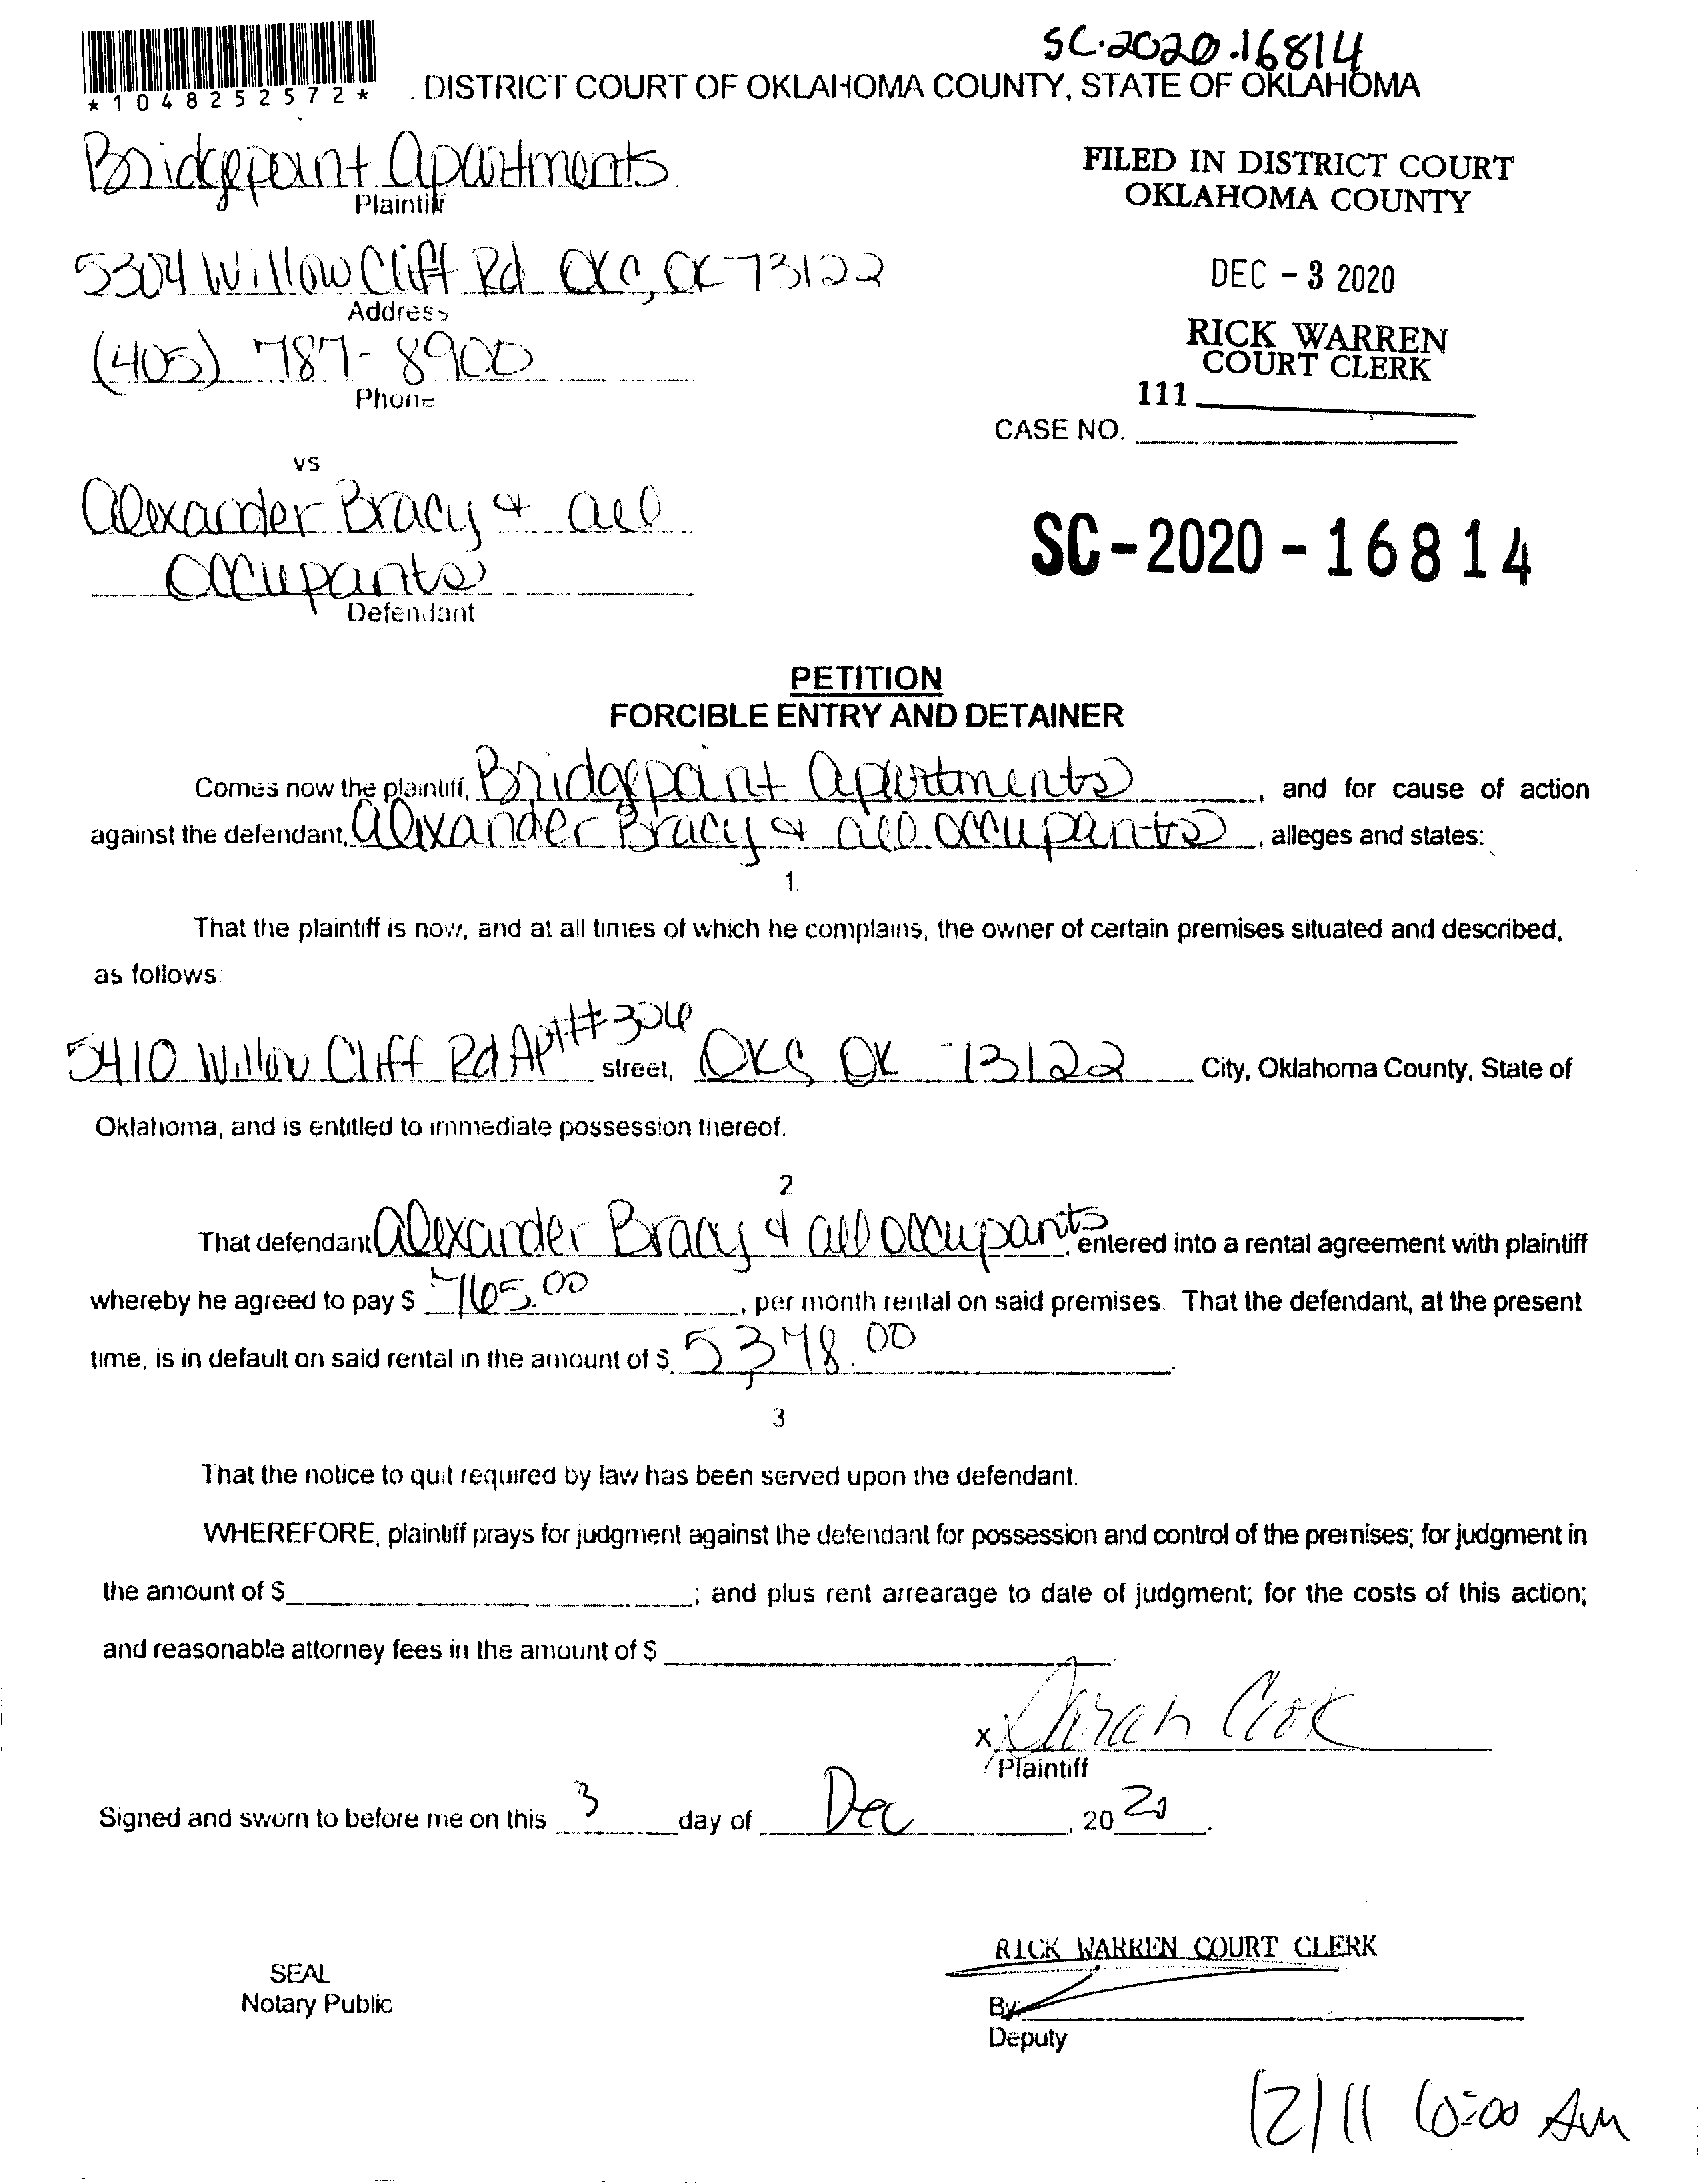 SC-2020-16814
*1048252572*
DISTRICT COURT OF OKLAHOMA COUNTY, STATE OF OKLAHOMA
Bridgepoint Apartments
Plaintiff
FILED IN DISTRICT COURT
OKLAHOMA COUNTY
5304 Willow Cliff Rd OKC, OK 73122
Address
DEC - 3 2020
(405) 787-8900
Phone
RICK WARREN
COURT CLERK
111
CASE NO.
vs
Alexander Bracy & all
Occupants
Defendant
SC-2020-16814
PETITION
FORCIBLE ENTRY AND DETAINER
Comes now the plaintiff, Bridgepoint Apartments, and for cause of action
against the defendant, Alexander Bracy & all occupants, alleges and states:
1.
That the plaintiff is now, and at all times of which he complains, the owner of certain premises situated and described,
as follows:
5410 Willow Cliff Rd Apt# 306 street, OKC OK 73122 City, Oklahoma County, State of
Oklahoma, and is entitled to immediate possession thereof.
2
That defendant Alexander Bracy & all occupants, entered into a rental agreement with plaintiff
whereby he agreed to pay $ 765.00, per month rental on said premises. That the defendant, at the present
time, is in default on said rental in the amount of $ 5,378.00.
3
That the notice to quit required by law has been served upon the defendant.
WHEREFORE, plaintiff prays for judgment against the defendant for possession and control of the premises; for judgment in
the amount of $ ; and plus rent arrearage to date of judgment; for the costs of this action;
and reasonable attorney fees in the amount of $
x
Plaintiff
Signed and sworn to before me on this 3 day of Dec, 2020.
RICK WARREN COURT CLERK
SEAL
Notary Public
By
Deputy
12/11 10:00 Am